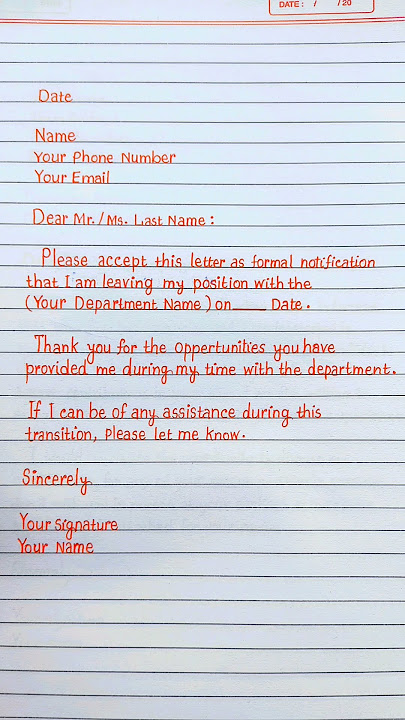 DATE: / /20
Date
Name
Your Phone Number
Your Email
Dear Mr./Ms. Last Name:
Please accept this letter as formal notification
that I am leaving my position with the
(Your Department Name) on____ Date.
Thank you for the Oppertunities you have
provided me during my time with the department.
If I can be of any assistance during this
transition, Please let me know.
Sincerely
Your Signature
Your Name